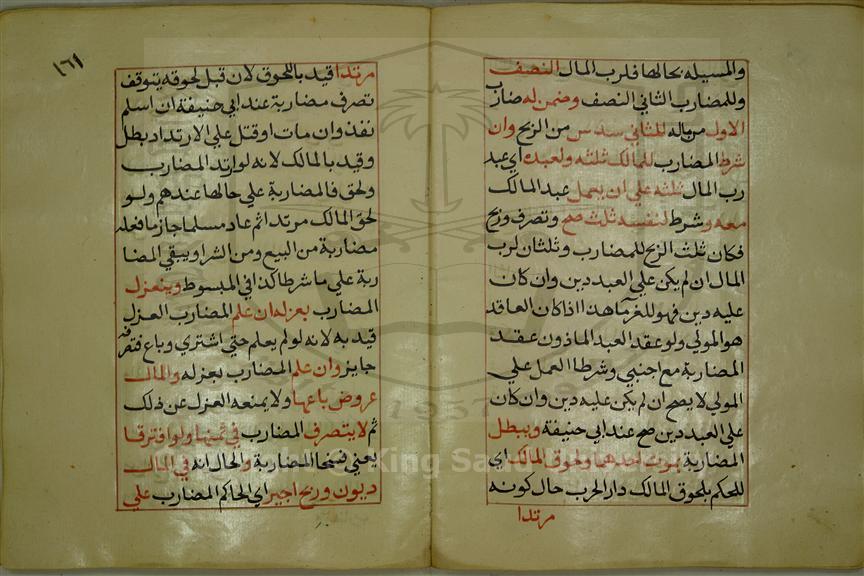 والمسيله بحالها فلرب المال النصف
وللمضارب الثاني النصف وضمن له ضارب
الاول من ماله للثاني سدس من الربح وان
شرط المضارب للمالك ثلثه ولعبده اي عبد
رب المال ثلثه علي ان يعمل عبد المالك
معه وشرط لنفسه ثلث صح وتصرف وربح
فكان ثلث الربح للمضارب وثلثان لرب
المال ان لم يكن علي العبد دين وان كان
عليه دين فهو للغرما هذا اذا كان العاقد
هو المولي ولو عقد العبد الماذون عقد
المضاربة مع اجنبي وشرطا العمل علي
المولي لا يصح ان لم يكن عليه دين وان كان
علي العبد دين صح عند ابي حنيفة ويبطل
المضاربة بموت احدهما ولحوق المالك اي
للحكم بلحوق المالك دار الحرب حال كونه
مرتدا
١٦١
مرتدا قيد باللحوق لان قبل لحوقه يتوقف
تصرف مضاربة عند ابي حنيفة ان اسلم
نفذ وان مات او قتل علي الارتداد بطل
وقيد بالمالك لانه لو ارتد المضارب
ولحق فالمضاربة علي حالها عندهم ولو
لحق المالك مرتدا ثم عاد مسلما جاز ما فعله
مضاربة من البيع ومن الشرا ويبقي المضا
ربة علي ما شرطا كذا في المبسوط وينعزل
المضارب بعزله ان علم المضارب العزل
قيد به لانه لو لم يعلم حتي اشتري وباع فتصرفه
جايز وان علم المضارب بعزله والمال
عروض باعها ولا يمنعه العزل عن ذلك
ثم لا يتصرف المضارب في ثمنها ولو افترقا
يعني فسخا المضاربة والحال انه في المال
ديون وربح اجبر اي الحاكم المضارب علي